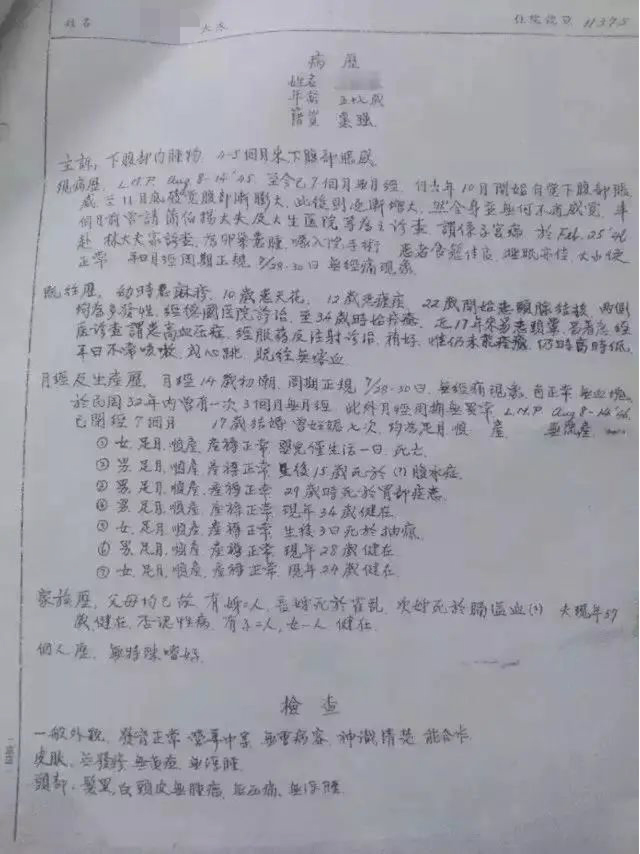 姓名 大木 住院號頭 11375
病歷
姓名
年齡 五十七歲
籍貫
主訴, 下腹部內腫物, 4-5個月來下腹部脹感
現病歷, L.M.P. Aug 8-14 '45, 至今已7個月無月經, 自去年10月開始自覺下腹部脹
感 至11月底發覺腹部漸膨大, 此後則逐漸增大, 然全身並無何不適感覺, 半
個月前曾請 大夫及 醫院等 診查 謂係子宮瘤 於 Feb. 25 '46
赴 林大夫 診查, 為卵巢囊腫 囑入院手術 患者食慾佳良, 睡眠亦佳, 大小便
正常 月經周期正規, 7/28-30日 無經痛現象
既往歷, 幼時患麻疹, 10歲患天花, 12歲患瘧疾, 22歲開始患頸腺結核, 兩側
均為多發性, 經德國醫院診治, 至34歲時始痊癒, 近17年來易患頭暈,
診查謂患高血壓症, 經服藥及注射診治, 稍好, 惟仍未痊癒, 仍時高時低,
年日不常咳嗽, 心跳, 既往無嘔血
月經及生產歷, 月經14歲初潮, 周期正規 7/28-30日, 無經痛現象, 色正常, 無血塊,
於民國32年內曾有一次3個月無月經 此外月經周期無異常, L.M.P Aug 8-14 '45,
已閉經7個月 17歲結婚 曾妊娠七次, 均為足月順產 無流產
① 女, 足月, 順產, 產褥正常 嬰兒僅生活一日, 死亡
② 男, 足月, 順產, 產褥正常 生後15歲死於(?)腹水症
③ 男, 足月, 順產, 產褥正常 29歲時死於胃部疾患
④ 男, 足月, 順產, 產褥正常 現年34歲健在
⑤ 女, 足月, 順產, 產褥正常 生後3日死於抽瘋
⑥ 男, 足月, 順產, 產褥正常 現年28歲健在
⑦ 女, 足月, 順產, 產褥正常 現年24歲健在
家族歷, 父母均已故, 有姊二人, 長姊死於霍亂, 次姊死於腦溢血(?) 夫現年57
歲健在, 否認性病, 有子二人, 女一人 健在
個人歷, 無特殊嗜好
檢查
一般外觀, 發育正常, 營養中等, 無重病容, 神識清楚, 能合作
皮膚, 無發疹 無黃疸 無浮腫
頭部, 髮黑, 白, 頭皮無腫瘤, 無压痛, 無浮腫